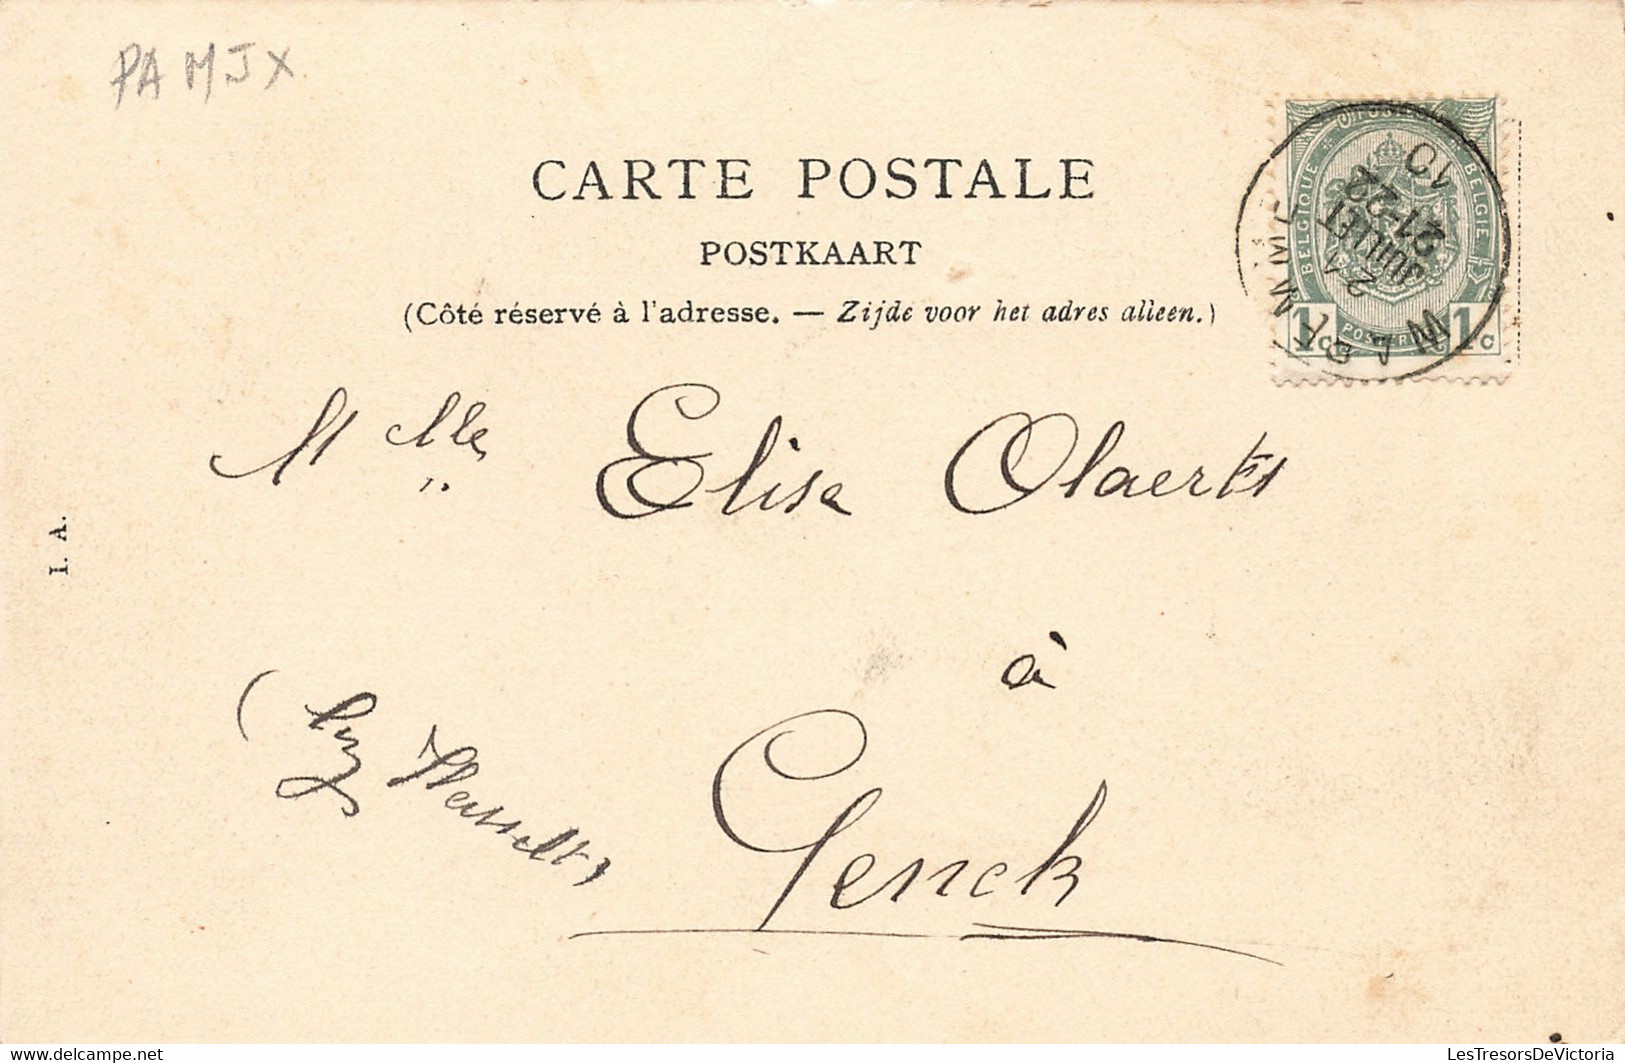 PA MJX
CARTE POSTALE
POSTKAART
(Côté réservé à l'adresse. — Zijde voor het adres alleen.)
BELGIQUE
BELGIE
1c
1c
21-22
JUILLET
10
I. A.
Melle Elise Olaerts
à
(lez Hasselt)
Genck
www.delcampe.net
LesTresorsDeVictoria